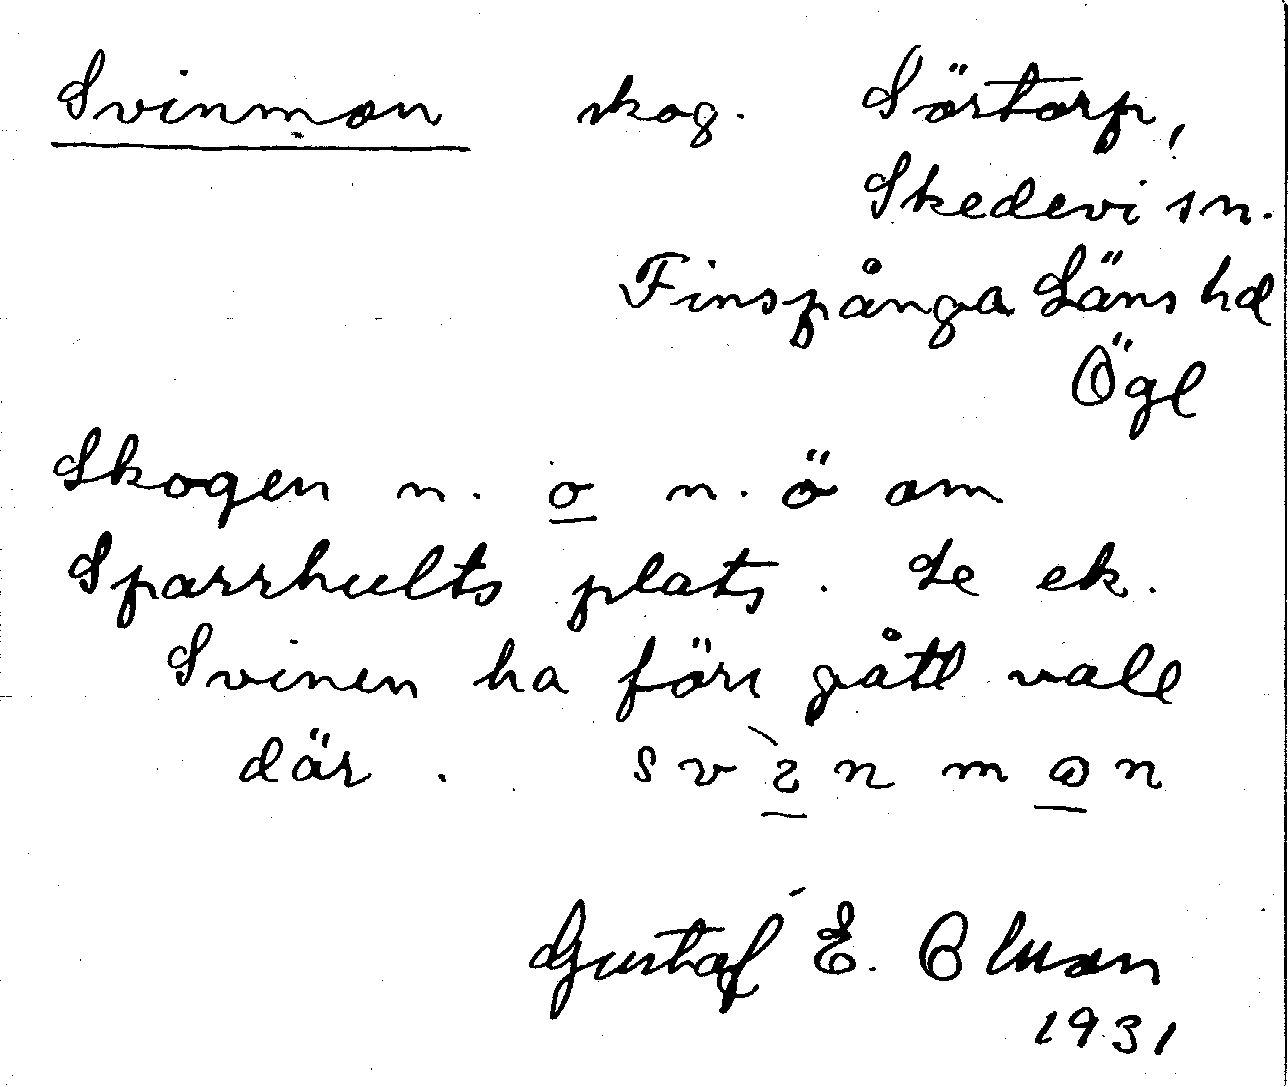 Svinmon skog. Sörtorp,
Skedevi sn.
Finspånga Läns hd
Ögl
Skogen n. o n. ö om
Sparrhults plats. Se ek.
Svinen ha förr gått vall
där.
Gustaf E. Olsson
1931